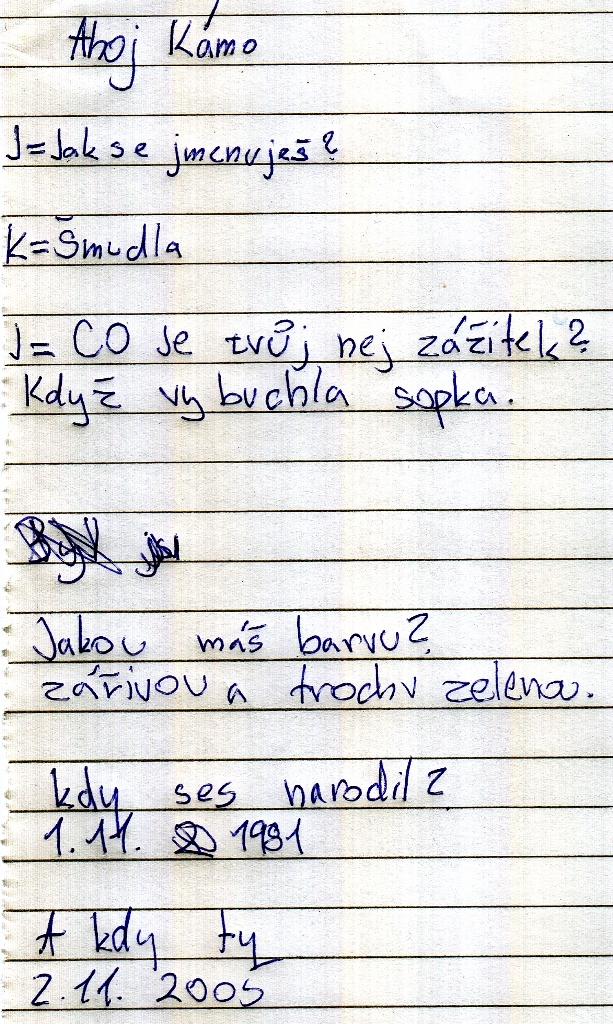 Ahoj Kámo
J=Jak se jmenuješ?
K=Šmudla
J= CO je tvůj nej zážitek?
Když vybuchla sopka.
Jakou máš barvu?
zářivou a trochu zelenou.
kdy ses narodil?
1.11. 1981
A kdy ty
2.11. 2005